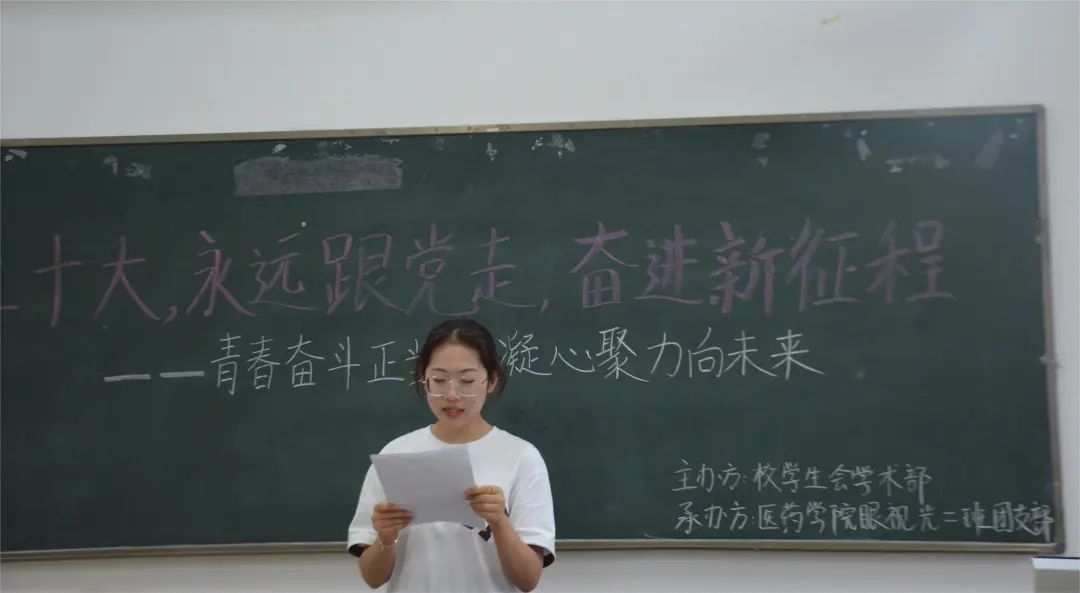 十大,永远跟党走,奋进新征程
——青春奋斗正 凝心聚力向未来
主办方:校学生会学术部
承办方:医药学院眼视光二班团支部